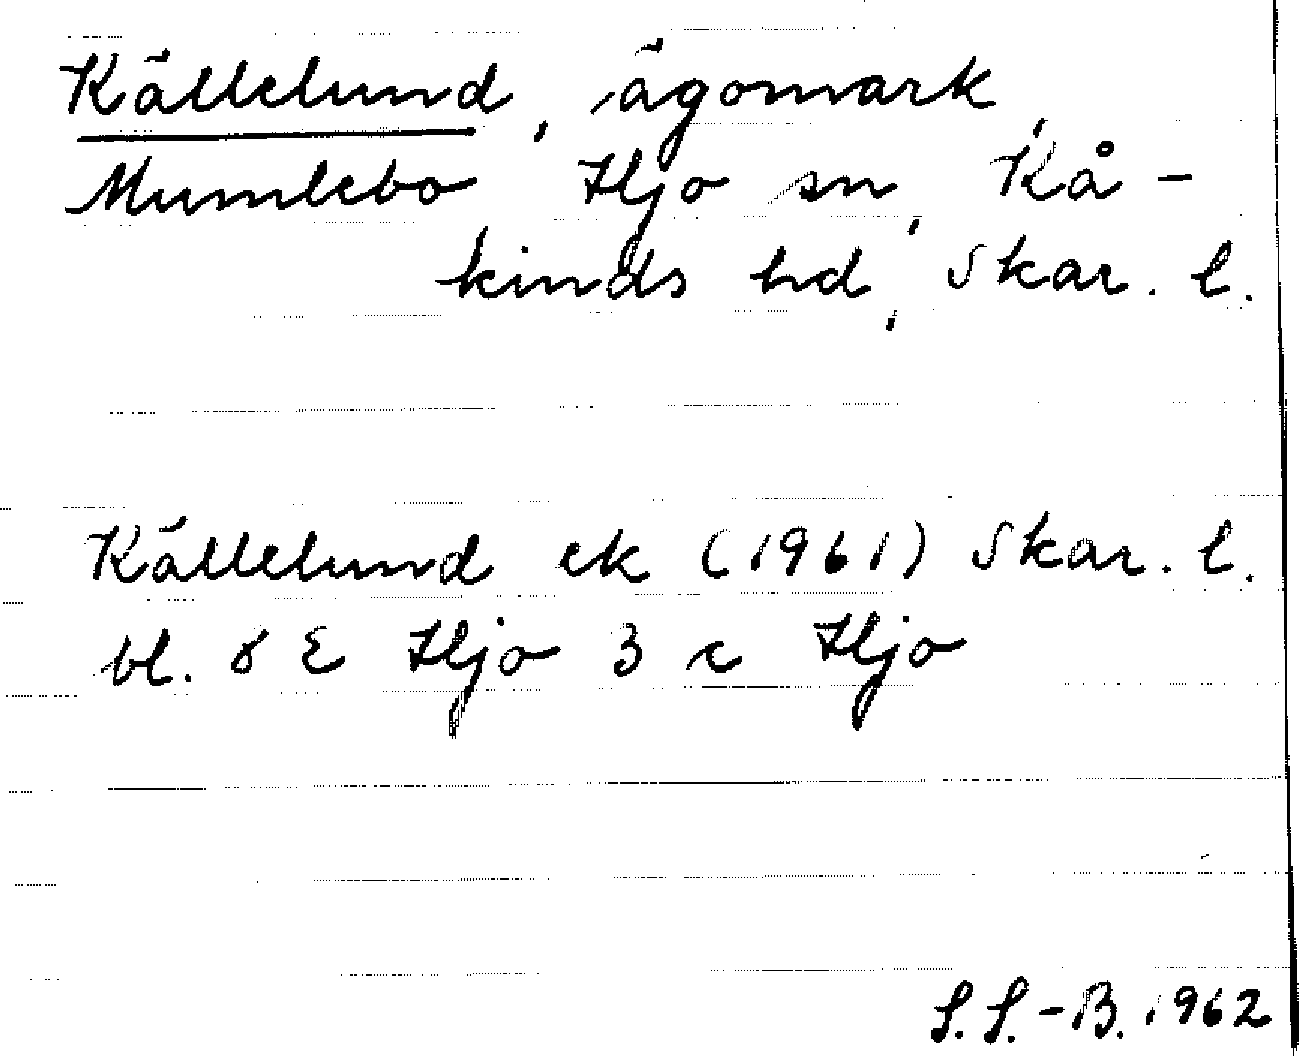 Källelund, ägomark,
Mumlebo, Hjo sn, Kå-
kinds hd, Skar. l.
Källelund ek (1961) Skar. l.
bl. 8 E Hjo 3 c Hjo
S.S.-B. 1962